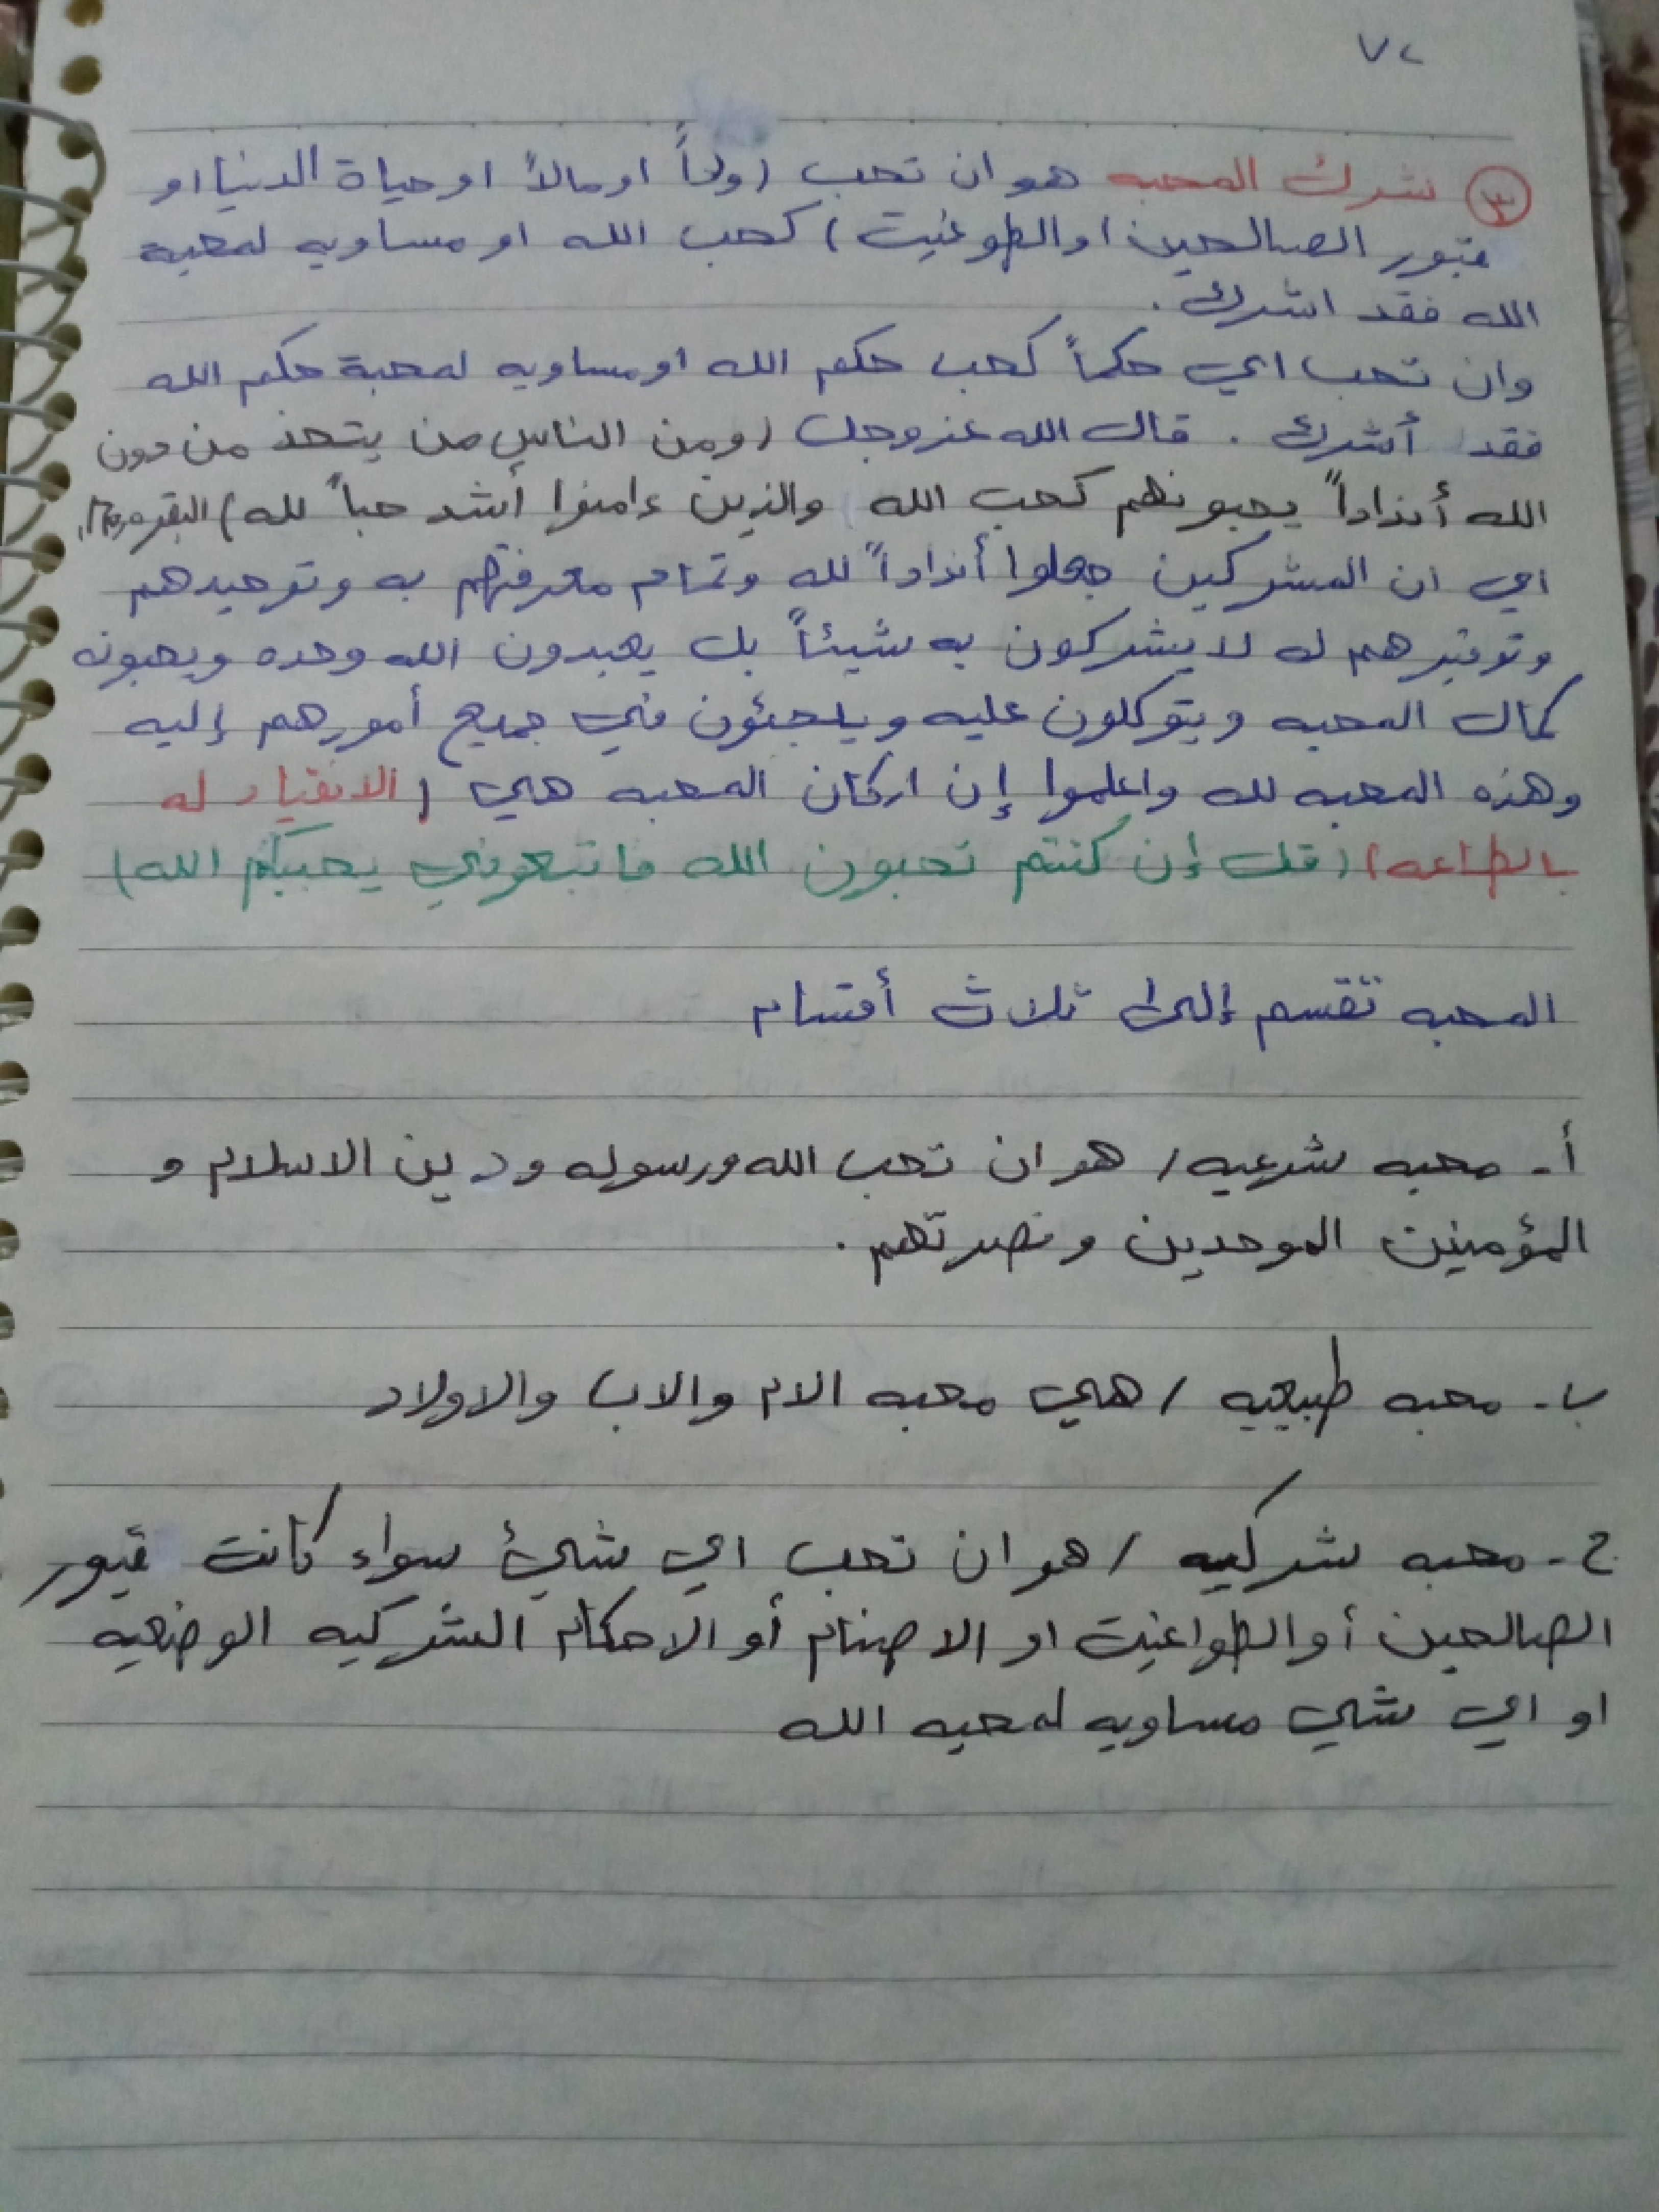 ٧٢
٣ شرك المحبه هو ان تحب (ولداً او مالاً او حياة الدنيا او
قبور الصالحين او الطوغيت) كحب الله او مساويه لمحبة
الله فقد اشرك.
وان تحب اي حكماً كحب حكم الله او مساويه لمحبة حكم الله
فقد أشرك. قال الله عز وجل (ومن الناس من يتخذ من دون
الله أنداداً يحبونهم كحب الله والذين ءامنوا أشد حباً لله) البقره
اي ان المشركين جعلوا أنداداً لله وتمام معرفتهم به وتوحيدهم
وتوقيرهم له لا يشركون به شيئاً بل يعبدون الله وحده ويحبونه
كمال المحبه ويتوكلون عليه ويلجئون في جميع أمورهم إليه
وهذه المحبه لله واعلموا إن اركان المحبه هي (الانقياد له
بالطاعه) (قل إن كنتم تحبون الله فاتبعوني يحببكم الله)
المحبه تقسم إلى ثلاث أقسام
أ- محبه شرعيه / هو ان تحب الله ورسوله ودين الاسلام و
المؤمنين الموحدين ونصرتهم.
ب- محبه طبيعيه / هي محبه الام والاب والاولاد
ج- محبه شركيه / هو ان تحب اي شيئ سواء كانت قبور
الصالحين أو الطواغيت او الاصنام أو الاحكام الشركيه الوضعيه
او اي شي مساويه لمحبه الله